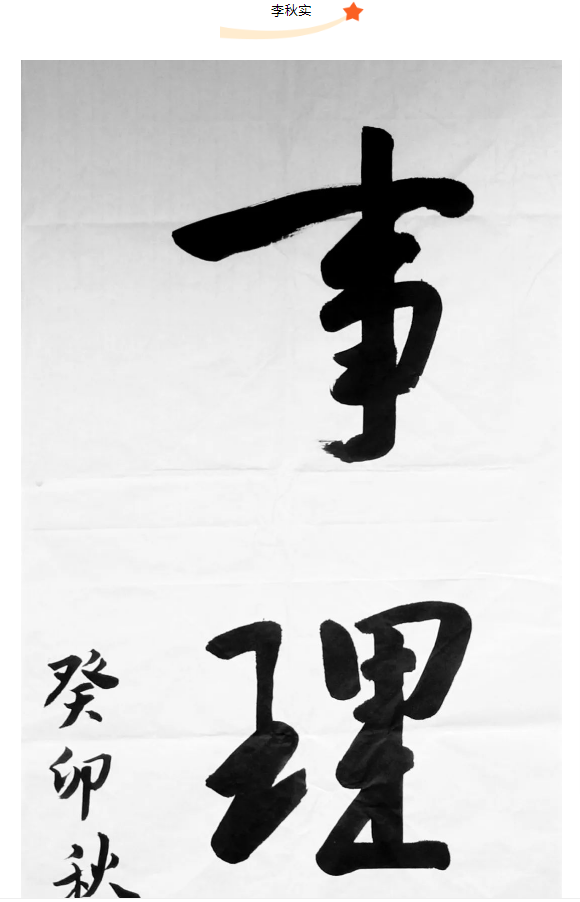 李秋实
事理
癸卯秋